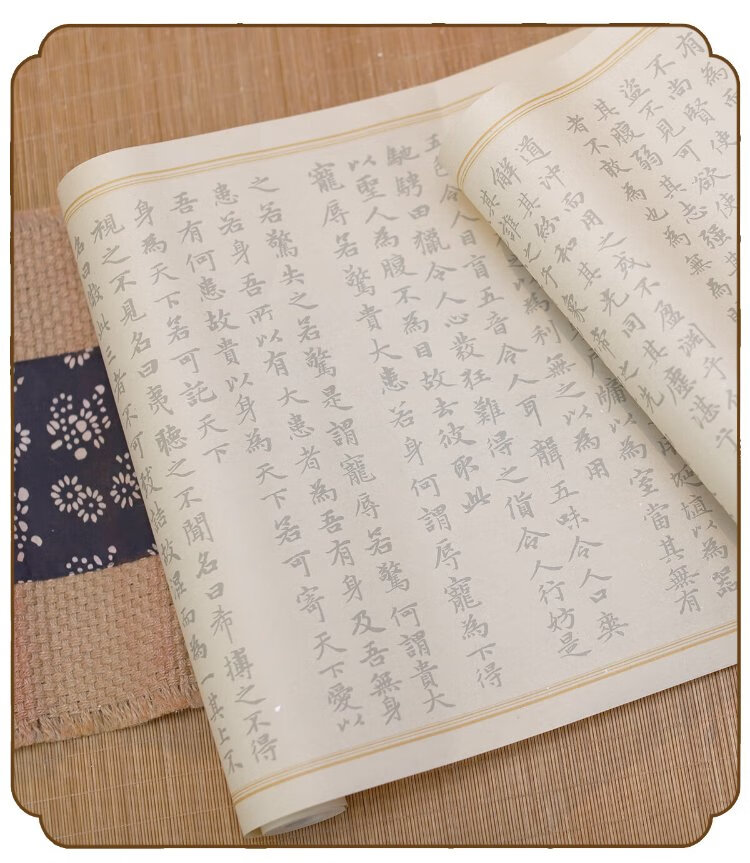 不尚賢使
盜不見可欲使
其腹弱其志強其
者不敢為也為無為
道沖而用之或不盈淵乎
解其紛和其光同其塵湛乎
其誰之子象帝之先
埴以為器
牖以為室當其無有
之以為利無之以為用
五色令人目盲五音令人耳聾五味令人口爽
馳騁田獵令人心發狂難得之貨令人行妨是
以聖人為腹不為目故去彼取此
寵辱若驚貴大患若身何謂辱寵為下得
之若驚失之若驚是謂寵辱若驚何謂貴大
患若身吾所以有大患者為吾有身及吾無身
吾有何患故貴以身為天下若可寄天下愛以
身為天下若可託天下
視之不見名曰夷聽之不聞名曰希搏之不得
名曰微此三者不可致詰故混而為一其上不